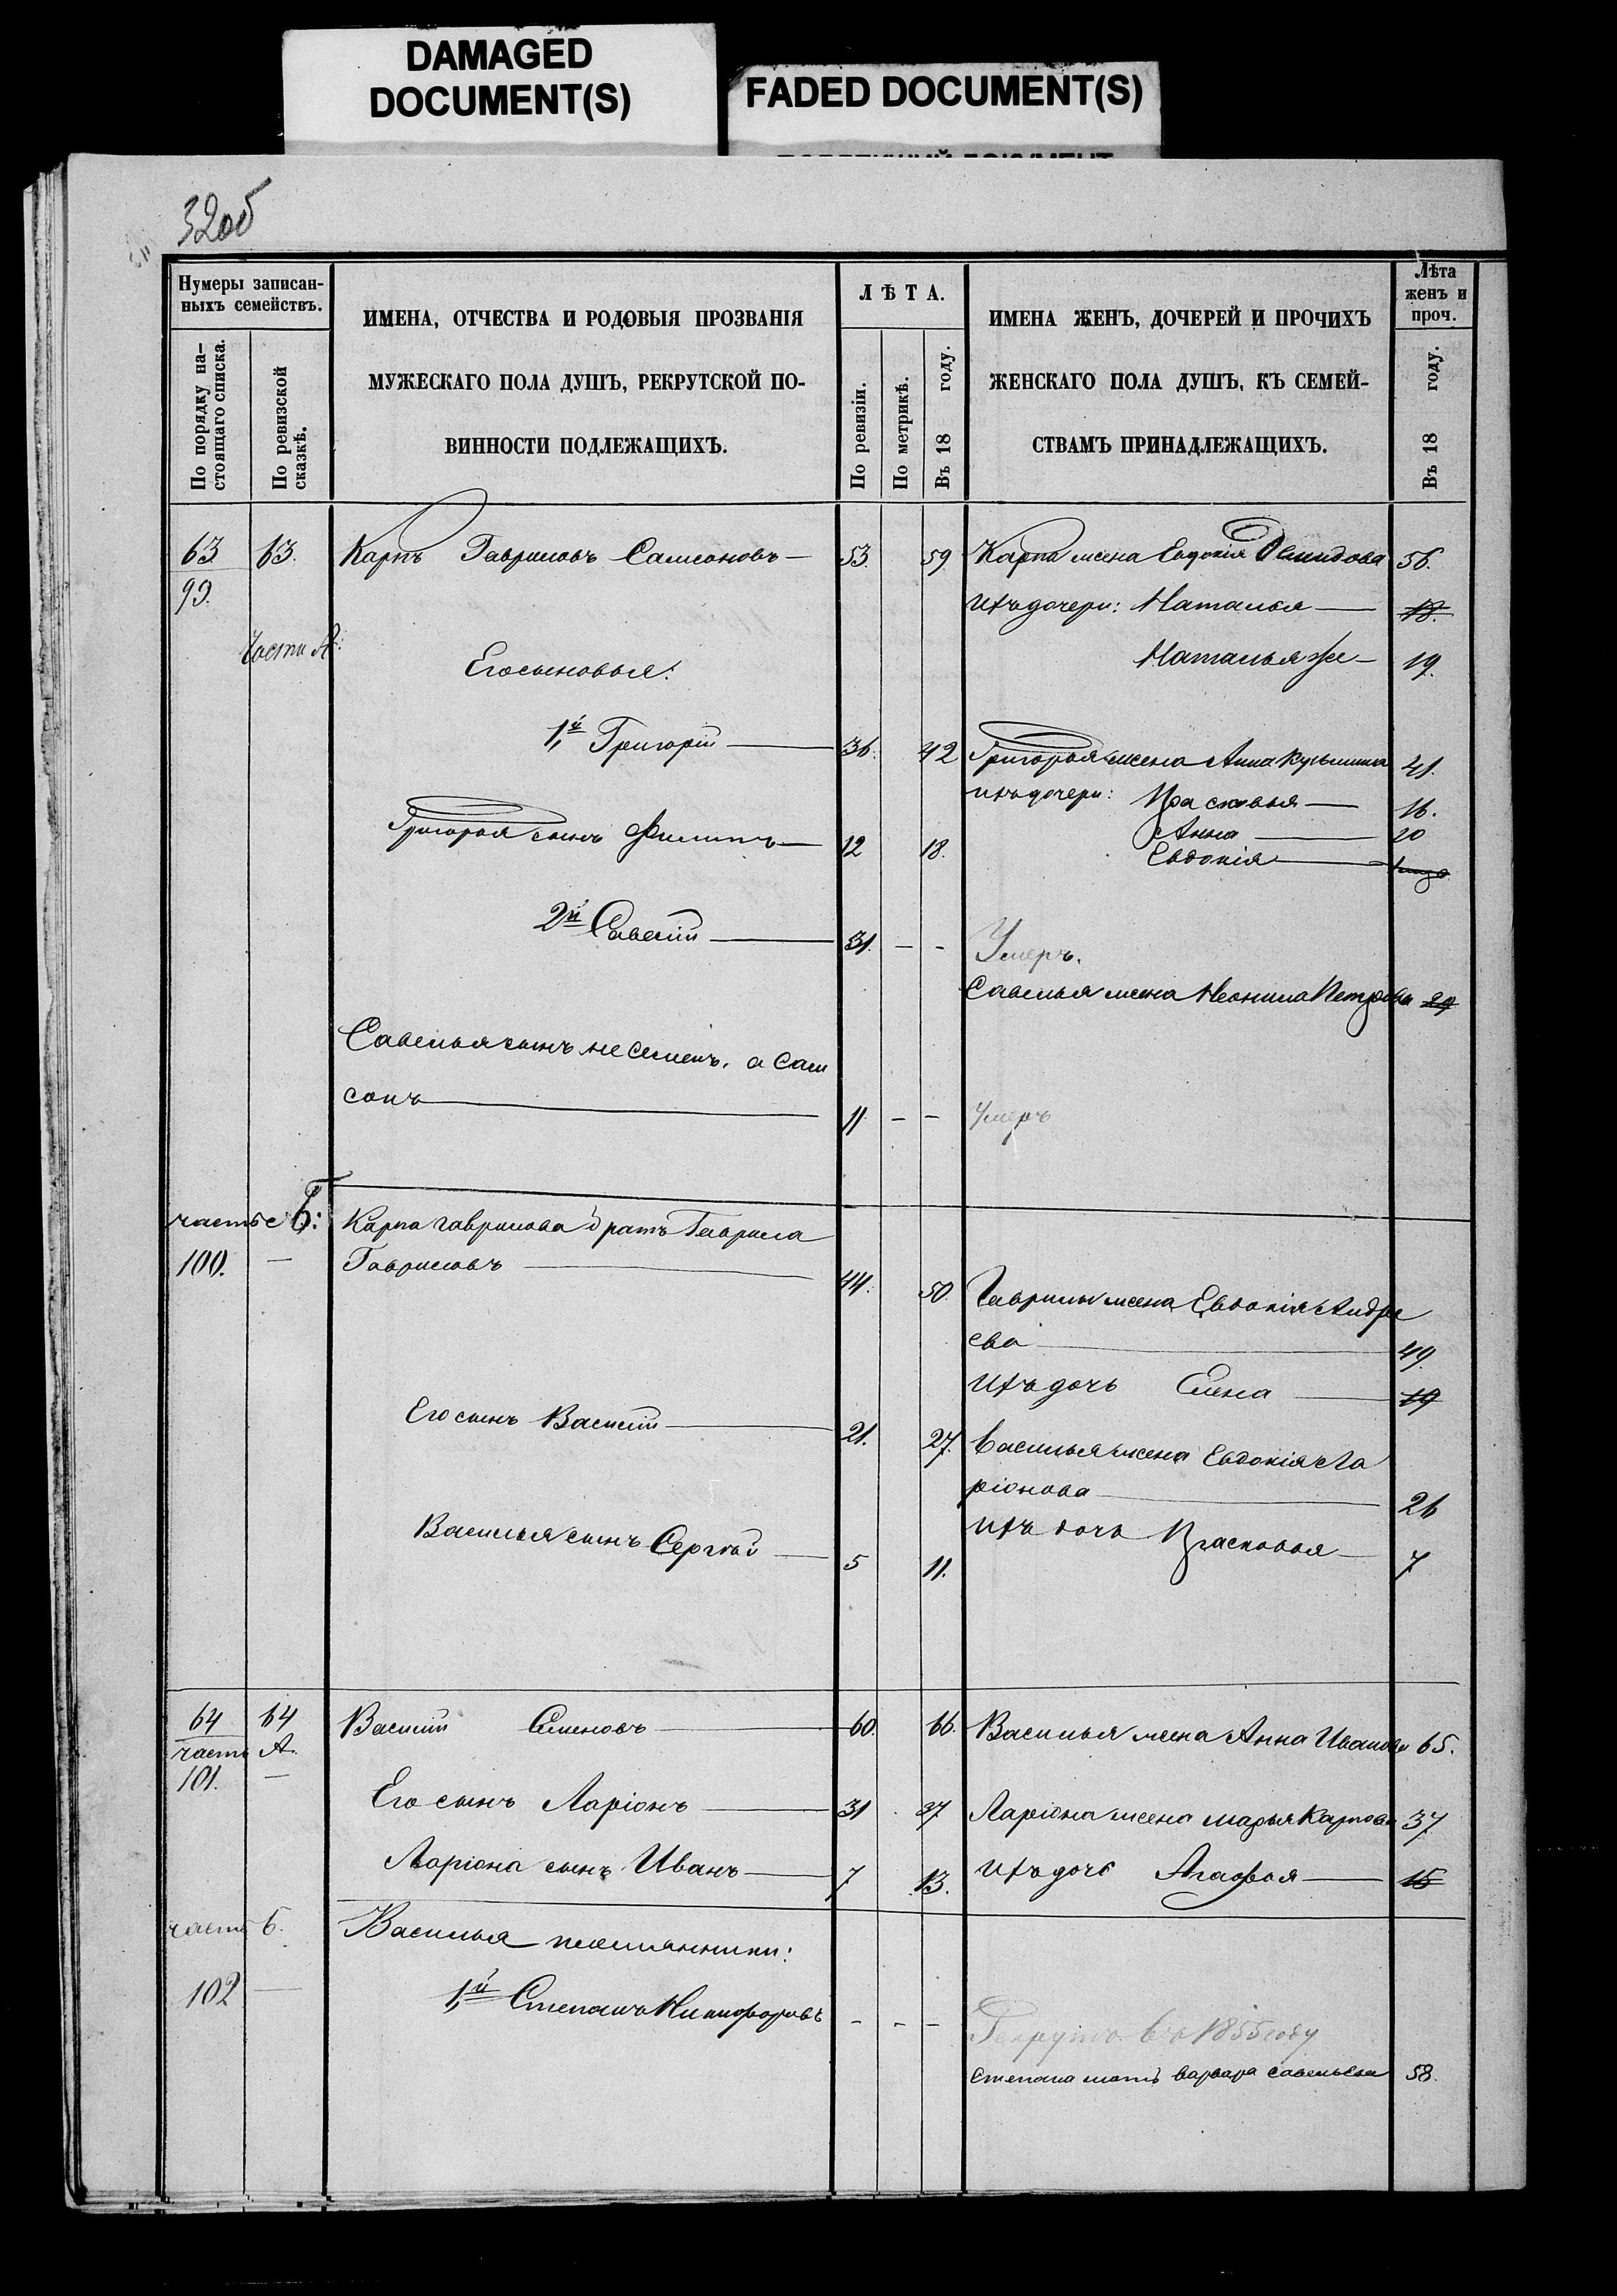 DAMAGED
DOCUMENT(S)
FADED DOCUMENT(S)
32об
Нумеры записан-
ныхъ семействъ.
По порядку на-
стоящаго списка.
По ревизской
сказкѣ.
ИМЕНА, ОТЧЕСТВА И РОДОВЫЯ ПРОЗВАНІЯ
МУЖЕСКАГО ПОЛА ДУШЪ, РЕКРУТСКОЙ ПО-
ВИННОСТИ ПОДЛЕЖАЩИХЪ.
ЛѢТА.
По ревизіи.
По метрикѣ.
Въ 18 году.
ИМЕНА ЖЕНЪ, ДОЧЕРЕЙ И ПРОЧИХЪ
ЖЕНСКАГО ПОЛА ДУШЪ, КЪ СЕМЕЙ-
СТВАМЪ ПРИНАДЛЕЖАЩИХЪ.
Лѣта
женъ и
проч.
Въ 18 году.
63 63. Карпъ Гавриловъ Самсоновъ — 53. 59. Карпа жена Евдокія Демидова 56.
99. Ихъ дочери: Наталья — 18.
части А:
Наталья же — 19.
Его сыновья:
1,й Григорій — 36. 42 Григорья жена Анна Кузьмина 41.
ихъ дочери: Прасковья — 16.
Анна — 20
Григорья сынъ Филипъ — 12 18.
Евдокія —
2й Савелій — 31. - - Умеръ.
Савелья жена Неонила Петрова 29
Савелья сынъ не Семенъ, а Сам
сонъ — 11 - - Умеръ
часть Б:
Карпа Гаврилова братъ Гаврила
100. — Гавриловъ — 44. 50. Гаврилы жена Евдокія Андре
ева — 49.
Ихъ дочь Елена — 19
Его сынъ Василій — 21. 27. Василья жена Евдокія Ла
ріонова — 26
Василья сынъ Сергѣй — 5 11.
Ихъ дочь Прасковья — 7
64 64 Василій Семеновъ — 60. 66. Василья жена Анна Иванова 65.
часть А.
101. —
Его сынъ Ларіонъ — 31 37 Ларіона жена Марья Карпова 37
Ларіона сынъ Иванъ — 7 13. Ихъ дочь Агафья — 15
часть Б. Василья племянники:
102 — 1,й Степанъ Никифоровъ - - -
Рекрутъ въ 1855 году
Степана мать Варвара Савельева 58.